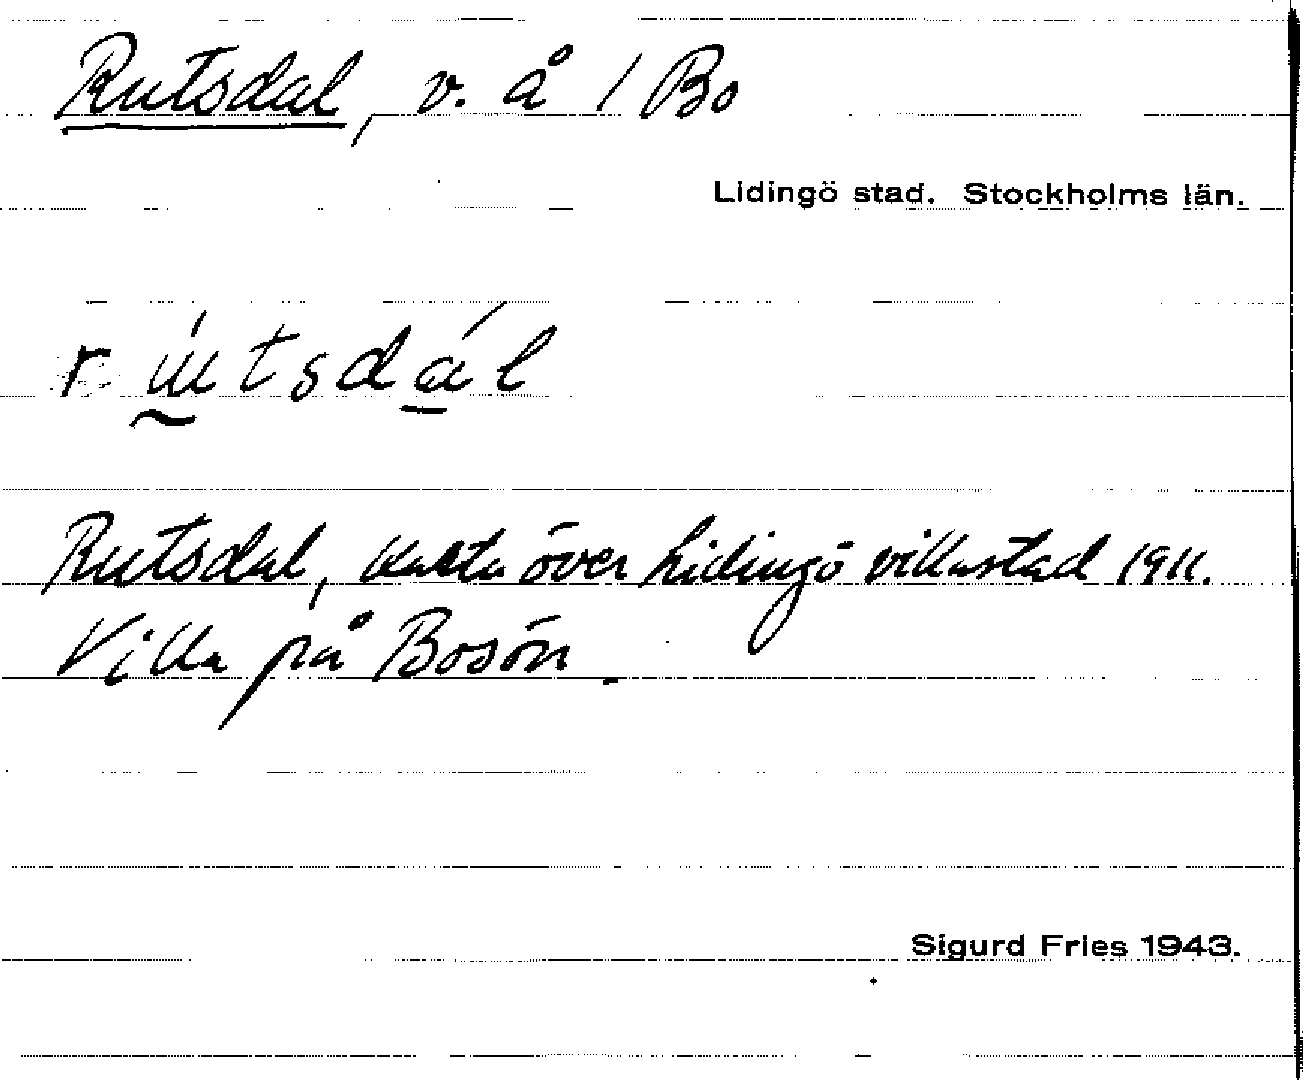 Rutsdal, v. å / Bo
Lidingö stad. Stockholms län.
rútsdál
Rutsdal, Karta över Lidingö villastad 1911.
Villa på Bosön.
Sigurd Fries 1943.